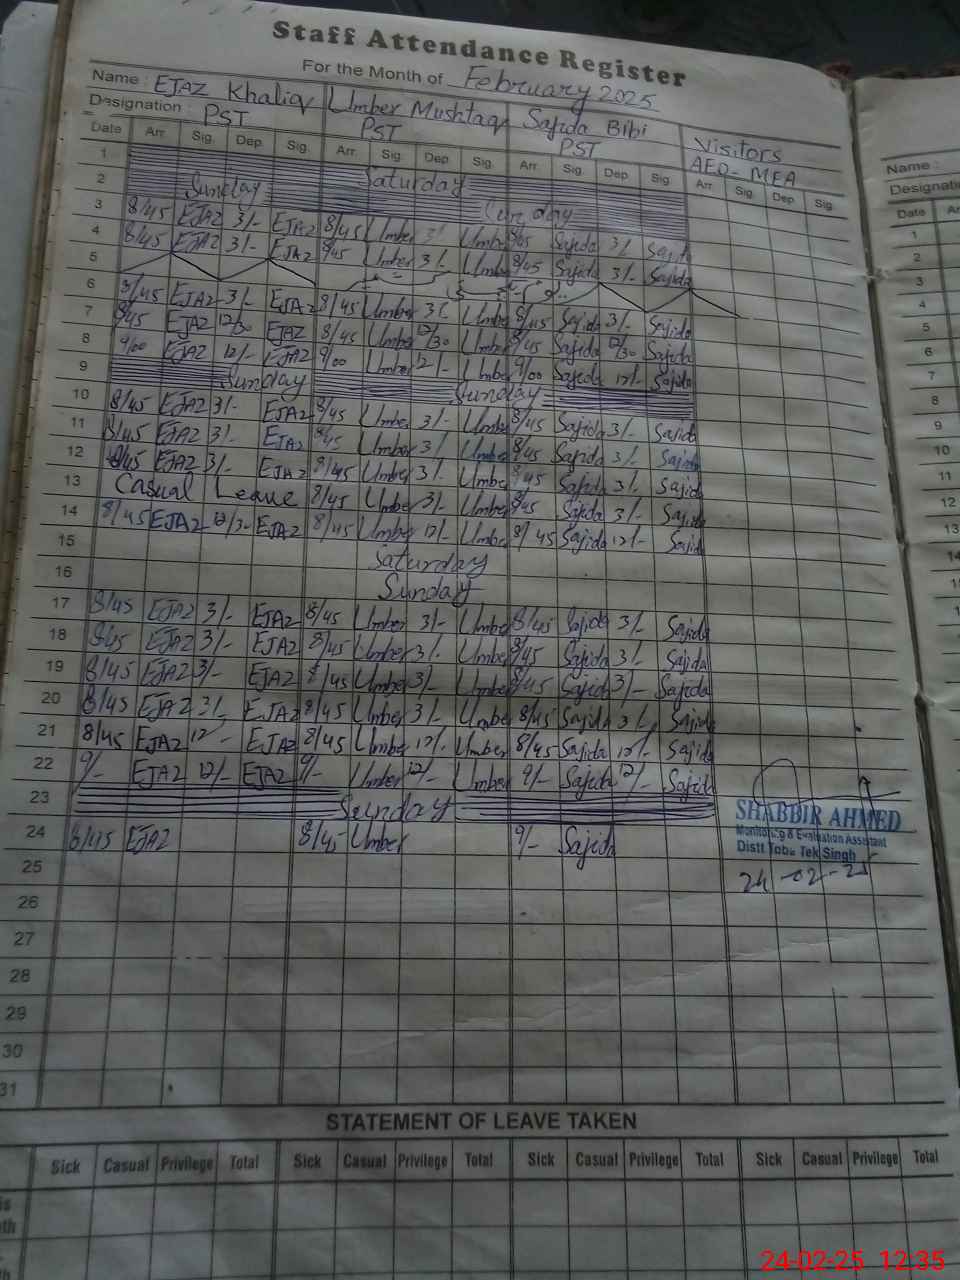 Staff Attendance Register
For the Month of February 2025
Name : EJAZ Khaliq Umber Mushtaq Sajida Bibi Visitors
Designation : PST PST PST AEO- MEA
Date Arr. Sig. Dep. Sig. Arr. Sig. Dep. Sig. Arr. Sig. Dep. Sig. Arr. Sig. Dep. Sig.
1 Saturday
2 Sunday Sunday
3 8/45 EJAZ 3/- EJAZ 8/45 Umber 3/- Umber 8/45 Sajida 3/- Sajida
4 8/45 EJAZ 3/- EJAZ 8/45 Umber 3/- Umber 8/45 Sajida 3/- Sajida
5
6 8/45 EJAZ 3/- EJAZ 8/45 Umber Umber 8/45 Sajida 3/- Sajida
7 8/45 EJAZ 12/30 EJAZ 8/45 Umber 12/30 Umber 8/45 Sajida 12/30 Sajida
8 9/00 EJAZ 12/- EJAZ 9/00 Umber 12/- Umber 9/00 Sajida 12/- Sajida
9 Sunday Sunday
10 8/45 EJAZ 3/- EJAZ 8/45 Umber 3/- Umber 8/45 Sajida 3/- Sajida
11 8/45 EJAZ 3/- EJAZ 8/45 Umber 3/- Umber 8/45 Sajida 3/- Sajida
12 8/45 EJAZ 3/- EJAZ 8/45 Umber 3/- Umber 8/45 Sajida 3/- Sajida
13 Casual Leave 8/45 Umber 3/- Umber 8/45 Sajida 3/- Sajida
14 8/45 EJAZ EJAZ 8/45 Umber 12/- Umber 8/45 Sajida 12/- Sajida
15 Saturday
16 Sunday
17 8/45 EJAZ 3/- EJAZ 8/45 Umber 3/- Umber 8/45 Sajida 3/- Sajida
18 8/45 EJAZ 3/- EJAZ 8/45 Umber 3/- Umber 8/45 Sajida 3/- Sajida
19 8/45 EJAZ 3/- EJAZ 8/45 Umber 3/- Umber 8/45 Sajida 3/- Sajida
20 8/45 EJAZ 3/- EJAZ 8/45 Umber 3/- Umber 8/45 Sajida 3/- Sajida
21 8/45 EJAZ 12/- EJAZ 8/45 Umber 12/- Umber 8/45 Sajida 12/- Sajida
22 9/- EJAZ 12/- EJAZ 9/- Umber 12/- Umber 9/- Sajida 12/- Sajida
23 Sunday
24 8/45 EJAZ 8/45 Umber 9/- Sajida
25
26
27
28
29
30
31
SHABBIR AHMED
Monitoring & Evaluation Assistant
Distt Toba Tek Singh
24-02-25
STATEMENT OF LEAVE TAKEN
Sick Casual Privilege Total Sick Casual Privilege Total Sick Casual Privilege Total Sick Casual Privilege Total
Name :
Date
1
2
3
4
5
6
7
8
9
10
11
12
13
14
24-02-25 12:35